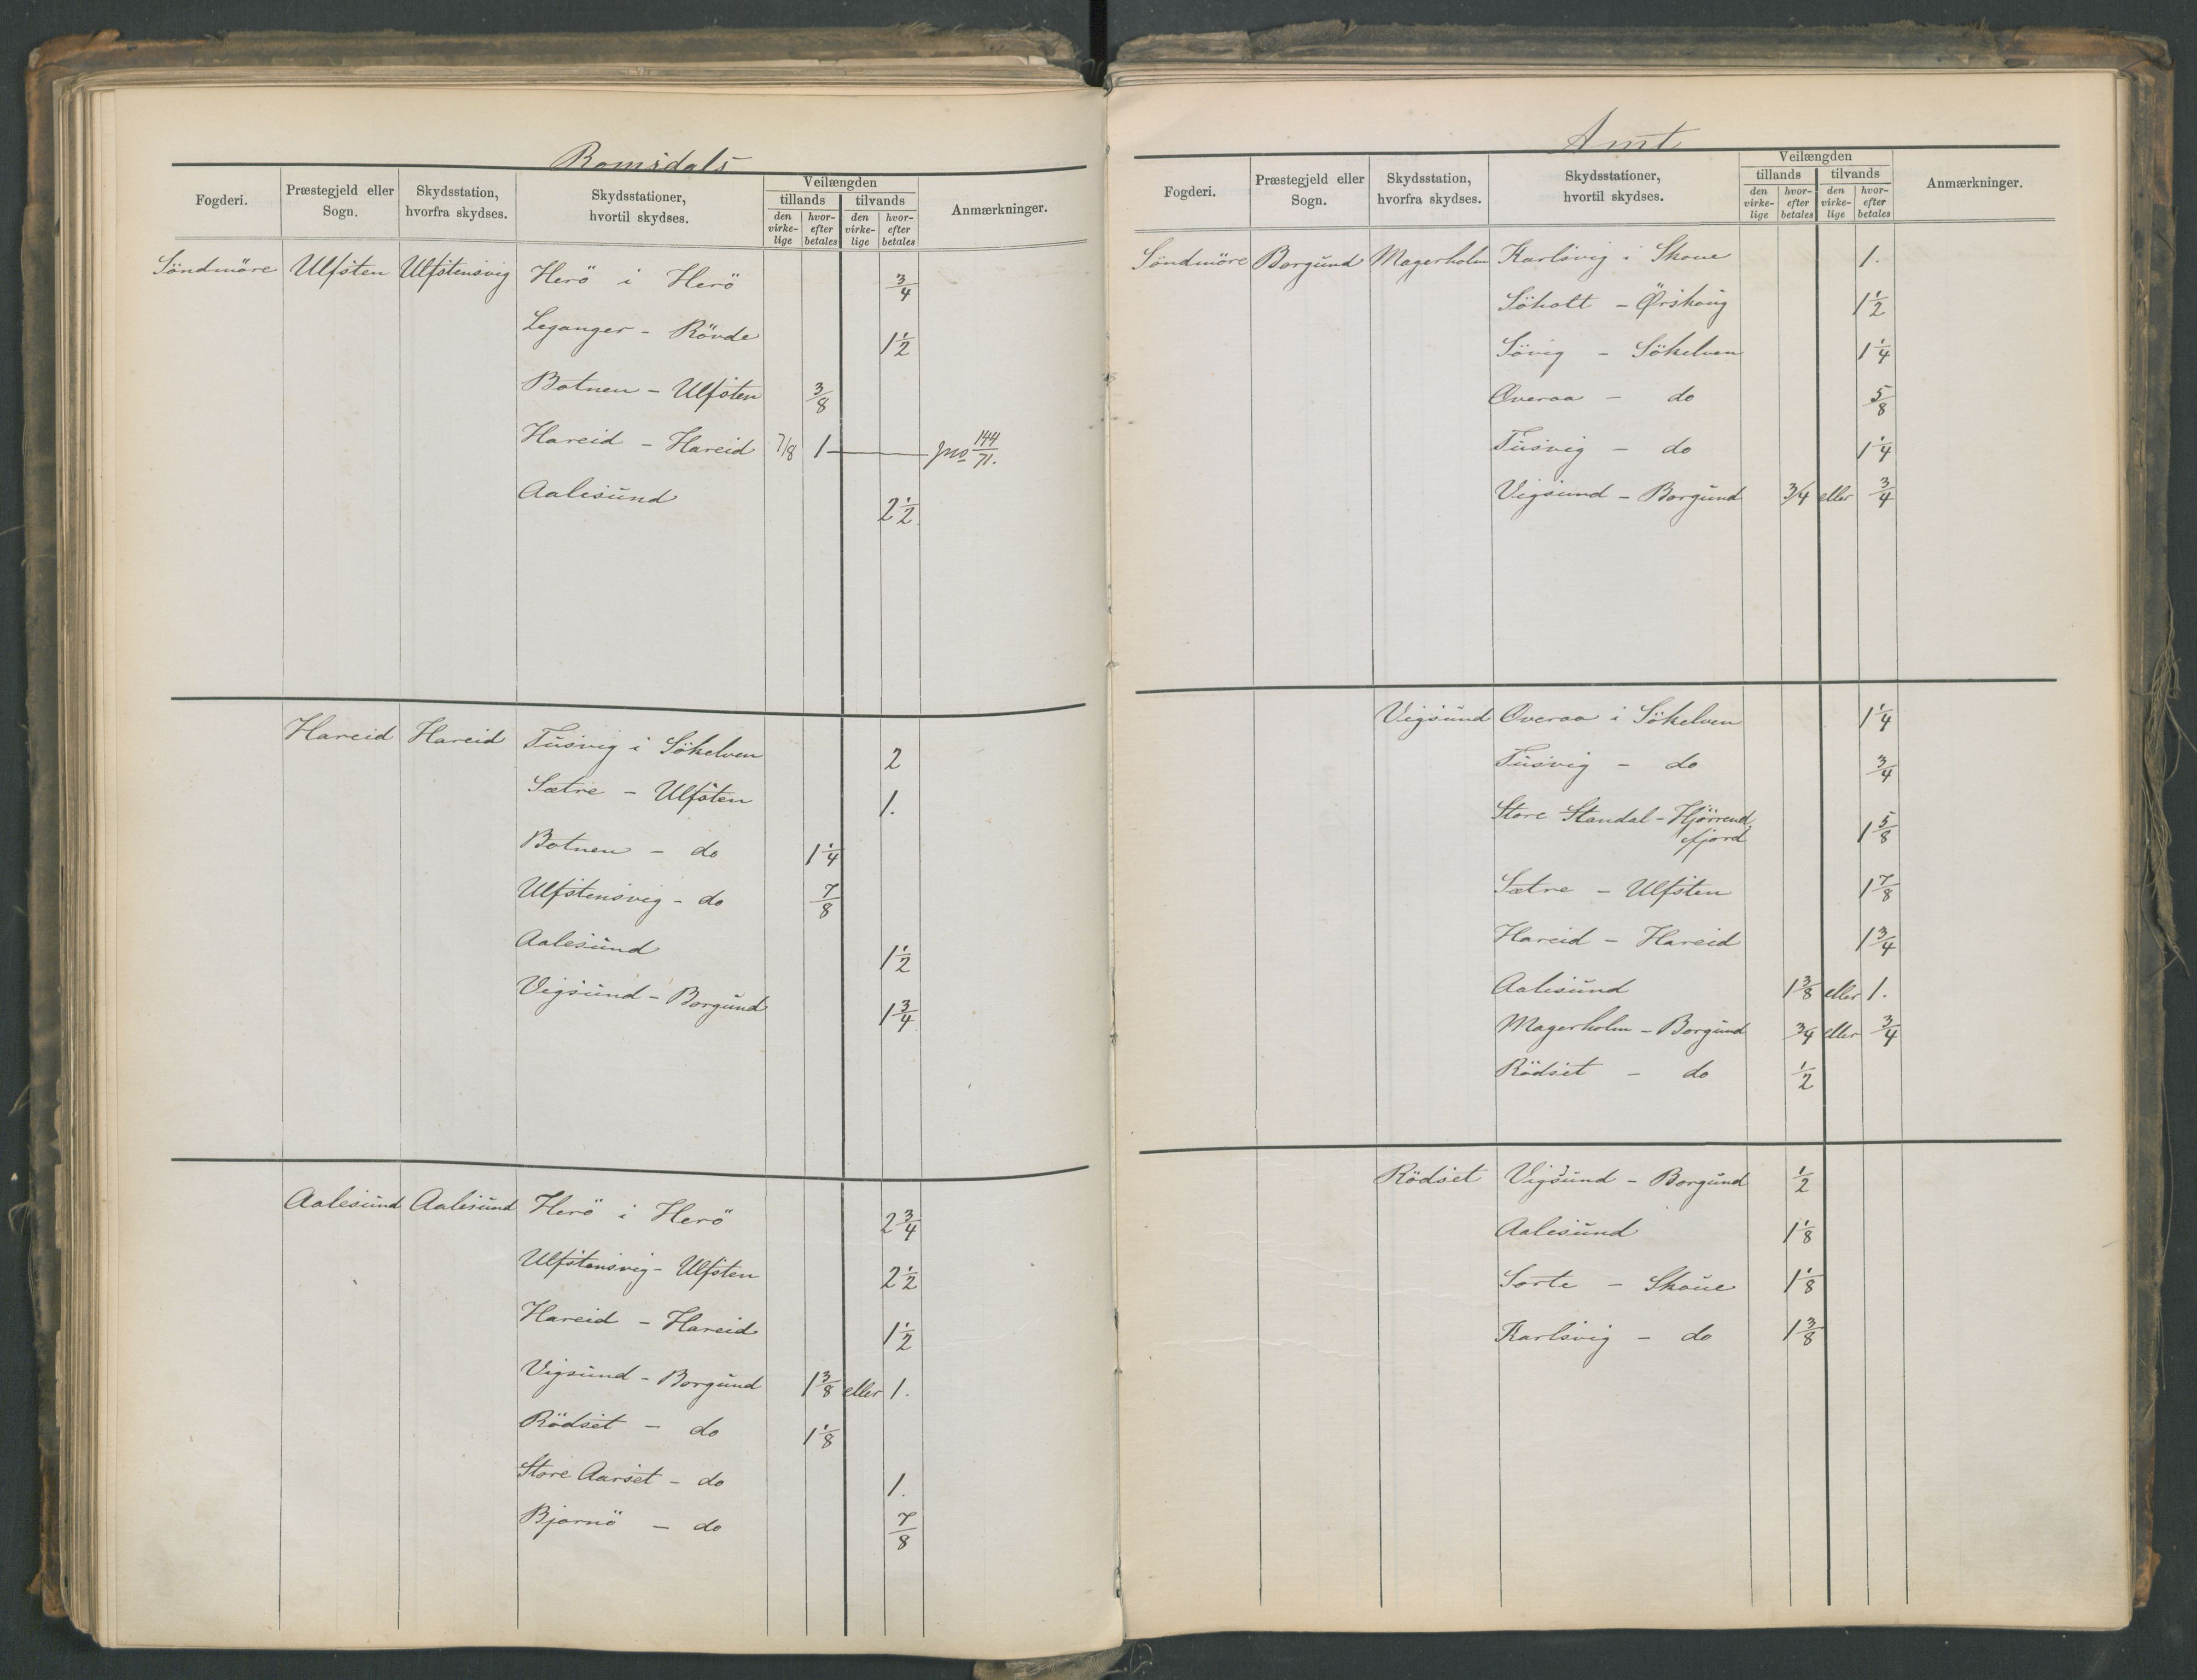 Romsdals
Fogderi. Præstegjeld eller Sogn. Skydsstation, hvorfra skydses. Skydsstationer, hvortil skydses. Veilængden tillands tilvands den virke- lige hvor- efter betales den virke- lige hvor- efter betales Anmærkninger.
Söndmöre Ulfsten Ulfstensvig Herö i Herö 3/4
Leganger - Rövde 1 1/2
Botnen - Ulfsten 3/8
Hareid - Hareid 7/8 1 - Jno 144/71.
Aalesund 2 1/2
Hareid Hareid Tusvig i Sökelven 2
Sætre - Ulfsten 1.
Botnen - do 1 1/4
Ulfstensvig - do 7/8
Aalesund 1 1/2
Vigsund - Borgund 1 3/4
Aalesund Aalesund Herö i Herö 2 3/4
Ulfstensvig - Ulfsten 2 1/2
Hareid - Hareid 1 1/2
Vigsund - Borgund 1 3/8 eller 1.
Rödset - do 1 1/8
Store Aarset - do 1.
Bjornö - do 7/8
Amt
Fogderi. Præstegjeld eller Sogn. Skydsstation, hvorfra skydses. Skydsstationer, hvortil skydses. Veilængden tillands tilvands den virke- lige hvor- efter betales den virke- lige hvor- efter betales Anmærkninger.
Söndmöre Borgund Magerholm Karlsvig i Skoue 1.
Söholt - Ørskoug 1 1/2
Sövig - Sökelven 1 1/4
Overaa - do 5/8
Tusvig - do 1 1/4
Vigsund - Borgund 3/4 eller 3/4
Vigsund Overaa i Sökelven 1 1/4
Tusvig - do 3/4
Store Standal - Hjörrend
fjord 1 5/8
Sætre - Ulfsten 1 7/8
Hareid - Hareid 1 3/4
Aalesund 1 3/8 eller 1.
Magerholm - Borgund 3/4 eller 3/4
Rödset - do 1/2
Rödset Vigsund - Borgund 1/2
Aalesund 1 1/8
Sorte - Skoue 1 1/8
Karlsvig - do 1 3/8